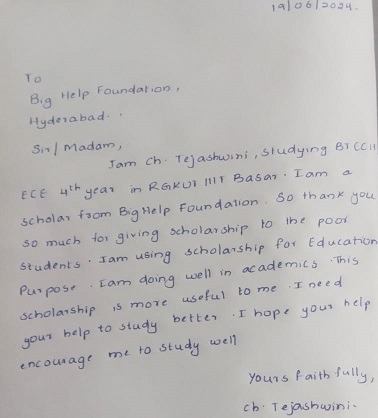 19/06/2024.
To
Big Help Foundation,
Hyderabad.
Sir/ Madam,
Iam Ch. Tejashwini, studying BTECH
ECE 4th year in RGKUT IIIT Basar. Iam a
scholar from Big Help Foundation. So thank you
so much for giving scholarship to the poor
students. Iam using scholarship for Education
Purpose. Iam doing well in academics. This
scholarship is more useful to me. I need
your help to study better. I hope your help
encourage me to study well
Yours faithfully,
Ch. Tejashwini.